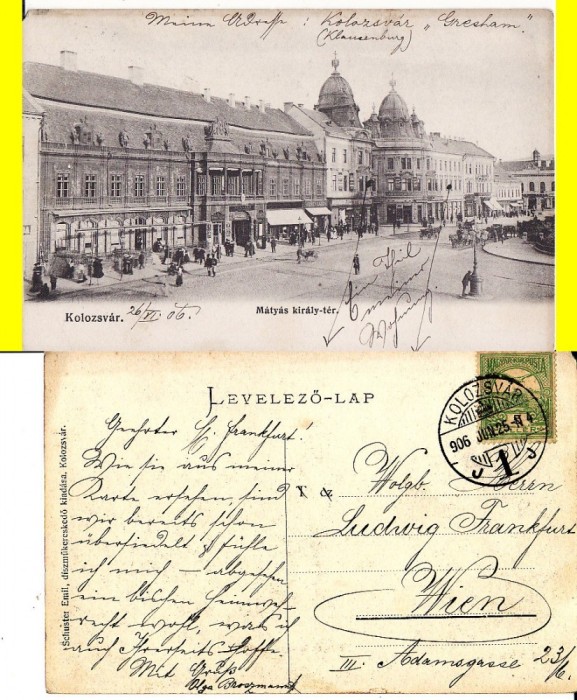 Meine Adresse: Kolozsvár „Gresham."
(Klausenburg)
Ein Theil
meiner
Wohnung
Kolozsvár. 26/VI. 06.
Mátyás király-tér.
LEVELEZŐ-LAP
Geehrter H. Frankfurt!
Wie sie aus meiner
Karte ersehen, sind
wir bereits schon
übersiedelt & fühle
ich mich – abgesehen
ein bischen Heimweh-
recht wohl, was ich
auch Ihrerseits hoffe.
Mit Gruß
Olga
Schuster Emil, díszműkereskedő kiadása, Kolozsvár.
MAGYAR KIR. POSTA
KOLOZSVÁR
906 JUN. 25
J 1 J
Wolgb. Herrn
Ludwig Frankfurt
Wien
III. Adamsgasse 23/